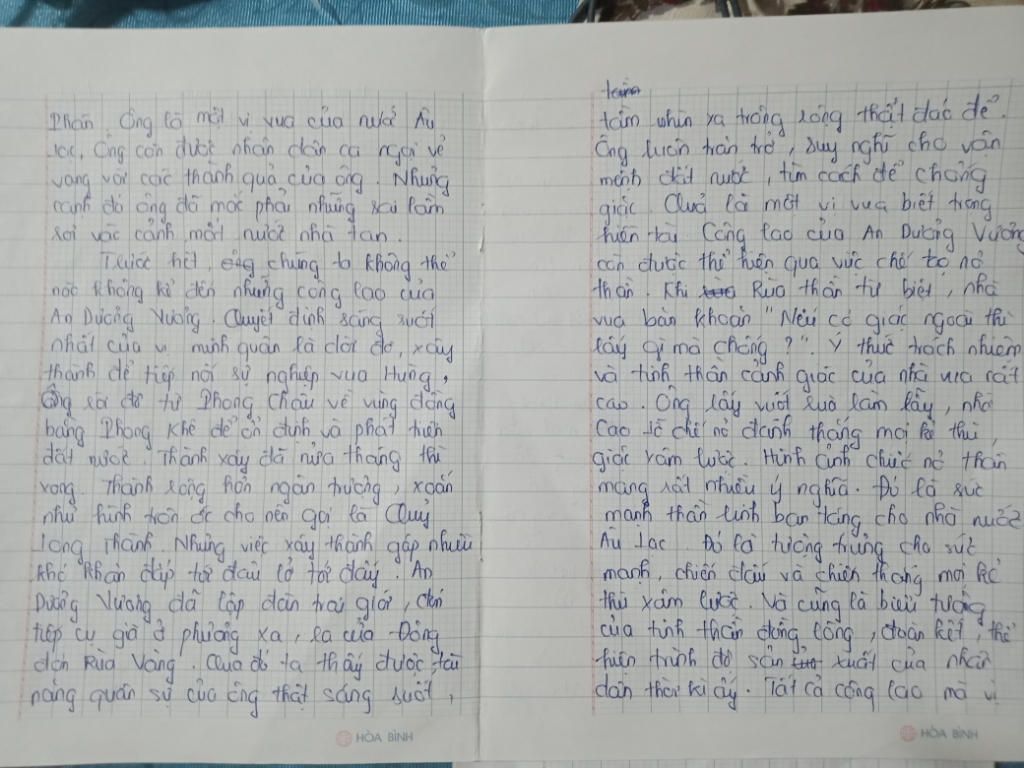 Phán. Ông là một vị vua của nước Âu
Lạc, Ông còn được nhân dân ca ngợi vẻ
vang với các thành quả của ông. Nhưng
cạnh đó ông đã mắc phải những sai lầm
rơi vào cảnh mất nước nhà tan.
Trước hết, chúng ta không thể
nào không kể đến những công lao của
An Dương Vương. Quyết định sáng suốt
nhất của vị minh quân là dời đô, xây
thành để tiếp nối sự nghiệp vua Hùng,
Ông dời đô từ Phong Châu về vùng đồng
bằng Phong Khê để ổn định và phát triển
đất nước. Thành xây đã nửa tháng thì
xong. Thành rộng hơn ngàn trượng, xoắn
như hình trôn ốc cho nên gọi là Quỷ
Long Thành. Nhưng việc xây thành gặp nhiều
khó khăn đắp tới đâu lở tới đấy. An
Dương Vương đã lập đàn trai giới, đón
tiếp cụ già ở phương xa, ra cửa Đông
đón Rùa Vàng. Qua đó ta thấy được tài
năng quân sự của ông thật sáng suốt,
tầm nhìn xa trông rộng thật đáo để.
Ông luôn trăn trở, suy nghĩ cho vận
mệnh đất nước, tìm cách để chống
giặc. Quả là một vị vua biết trọng
hiền tài. Công lao của An Dương Vương
còn được thể hiện qua việc chế tạo nỏ
thần. Khi Rùa thần từ biệt, nhà
vua băn khoăn "Nếu có giặc ngoài thì
lấy gì mà chống?". Ý thức trách nhiệm
và tinh thần cảnh giác của nhà vua rất
cao. Ông lấy vuốt rùa làm lẫy, nhờ
Cao Lỗ chế nỏ đánh thắng mọi kẻ thù,
giặc xâm lược. Hình ảnh chiếc nỏ thần
mang rất nhiều ý nghĩa. Đó là sức
mạnh thần linh ban tặng cho nhà nước
Âu Lạc. Đó là tượng trưng cho sức
mạnh, chiến đấu và chiến thắng mọi kẻ
thù xâm lược. Và cũng là biểu tượng
của tinh thần đồng lòng, đoàn kết, thể
hiện trình độ sản xuất của nhân
dân thời kì ấy. Tất cả công lao mà vị
HÒA BÌNH
HÒA BÌNH